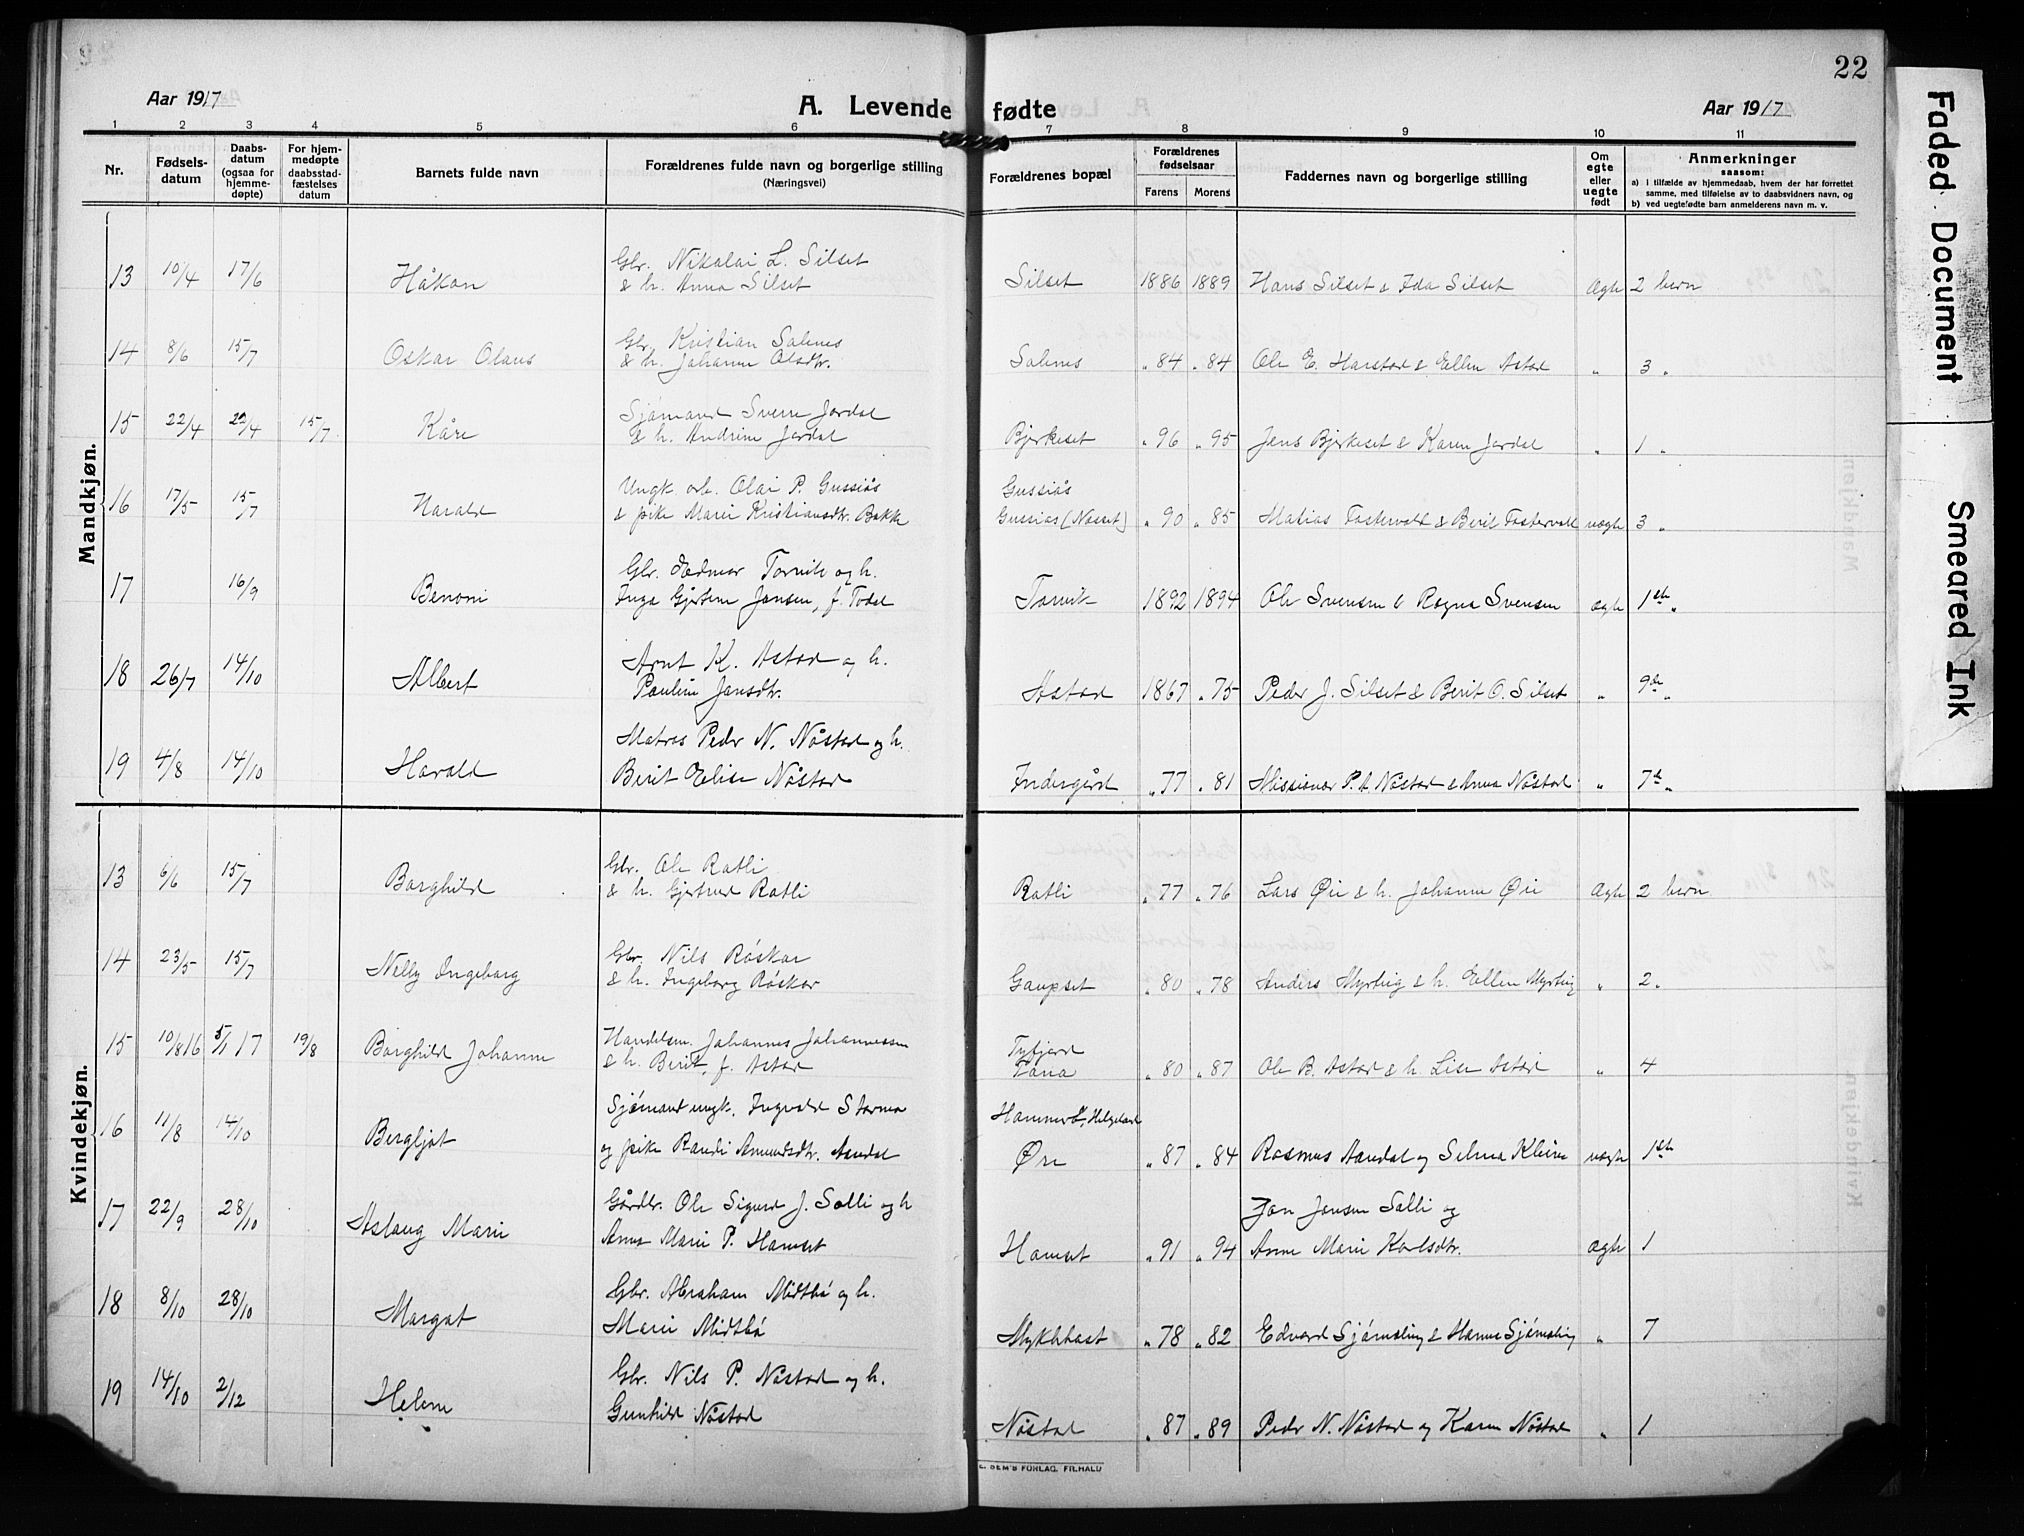 22
Aar 1917
A. Levende fødte
Aar 1917
1 2 3 4 5 6 7 8 9 10 11
Nr.
Fødsels-
datum
Daabs-
datum
(ogsaa for
hjemme-
døpte)
For hjem-
medøpte
daabsstad-
fæstelses
datum
Barnets fulde navn
Forældrenes fulde navn og borgerlige stilling
(Næringsvei)
Forældrenes bopæl
Forældrenes
fødselsaar
Farens Morens
Faddernes navn og borgerlige stilling
Om
egte
eller
uegte
født
Anmerkninger
saasom:
a) I tilfælde av hjemmedaab, hvem der har forrettet
samme, med tilføielse av to daabsvidners navn, og
b) ved uegtefødte barn anmelderens navn m. v.
Mandkjøn.
Gbr. Nikolai L. Silset
13 10/4 17/6 Håkon & h. Anna Silset Silset 1886 1889 Hans Silset & Ida Silset Ægte 2 barn
Gbr. Kristian Salenes
14 8/6 15/7 Oskar Olaus & h. Johanne Olsdtr. Salenes " 84 " 84 Ole E. Harstad & Ellen Astad " 3 "
Sjømand Sverre Jordal
15 22/4 22/4 15/7 Kåre & h. Andrine Jordal Bjerkeset " 96 " 95 Jens Bjerkeset & Karen Jordal " 1 "
Ungk. arb. Olai P. Gussiås Gussiås
16 17/5 15/7 Harald & pike Marie Kristiansdtr. Bakke Gussiås (Nesset) " 90 " 85 Matias Fostervold & Berit Fostervold uægte 3 "
Gbr. Edmar Torvik og h.
17 16/9 Benoni Inga Gjertine Jensen, f. Todal Torvik 1892 1894 Ole Svensen & Ragna Svensen ægte 1ste "
Arnt K. Astad og h.
18 26/7 14/10 Albert Pauline Jansdtr. Astad 1867 " 75 Peder J. Silset & Berit O. Silset " 9de "
Matros Peder N. Nåstad og h.
19 4/8 14/10 Harald Berit Elise Nåstad Indergård " 77 " 81 Missionær P. A. Nåstad & Anna Nåstad " 7de "
Kvindekjøn.
Gbr. Ole Ratli
13 6/6 15/7 Borghild & h. Gjertrud Ratli Ratli " 77 " 76 Lars Øre & h. Johanne Øre Ægte 2 barn
Gbr. Nils Røskar
14 23/5 15/7 Nelly Ingeborg & h. Ingeborg Røskar Gaupset " 80 " 78 Anders Myrteig & h. Ellen Myrteig " 2 "
Handelsm. Johannes Johannessen Tyfjord
15 10/8 16 5/1 17 19/8 Borghild Johanne & h. Berit, f. Astad Tana " 80 " 87 Ole B. Astad & h. Lise Astad " 4
Sjømand ungk. Ingvald Storma Hammerø, Helgeland
16 11/8 14/10 Bergljot og pike Randi Amundsdtr. Aandal Øre " 87 " 84 Rasmus Aandal og Selma Kleive uægte 1ste
Gårdbr. Ole Sigurd J. Solli og h Jon Jensen Solli og
17 22/9 28/10 Aslaug Marie Anne Marie P. Hamset Hamset " 91 " 94 Anne Marie Karlsdtr. ægte 1
Gbr. Abraham Midtbø og h.
18 8/10 28/10 Margot Marie Midtbø Myklebost " 78 " 82 Edvard Sjømæling & Hanna Sjømæling " 7
Gbr. Nils P. Nåstad og h.
19 14/10 2/12 Helene Gunhild Nåstad Nåstad " 87 " 89 Peder N. Nåstad og Karen Nåstad " 1
E. SEM'S FORLAG, FR.HALD
Faded Document
Smeared Ink